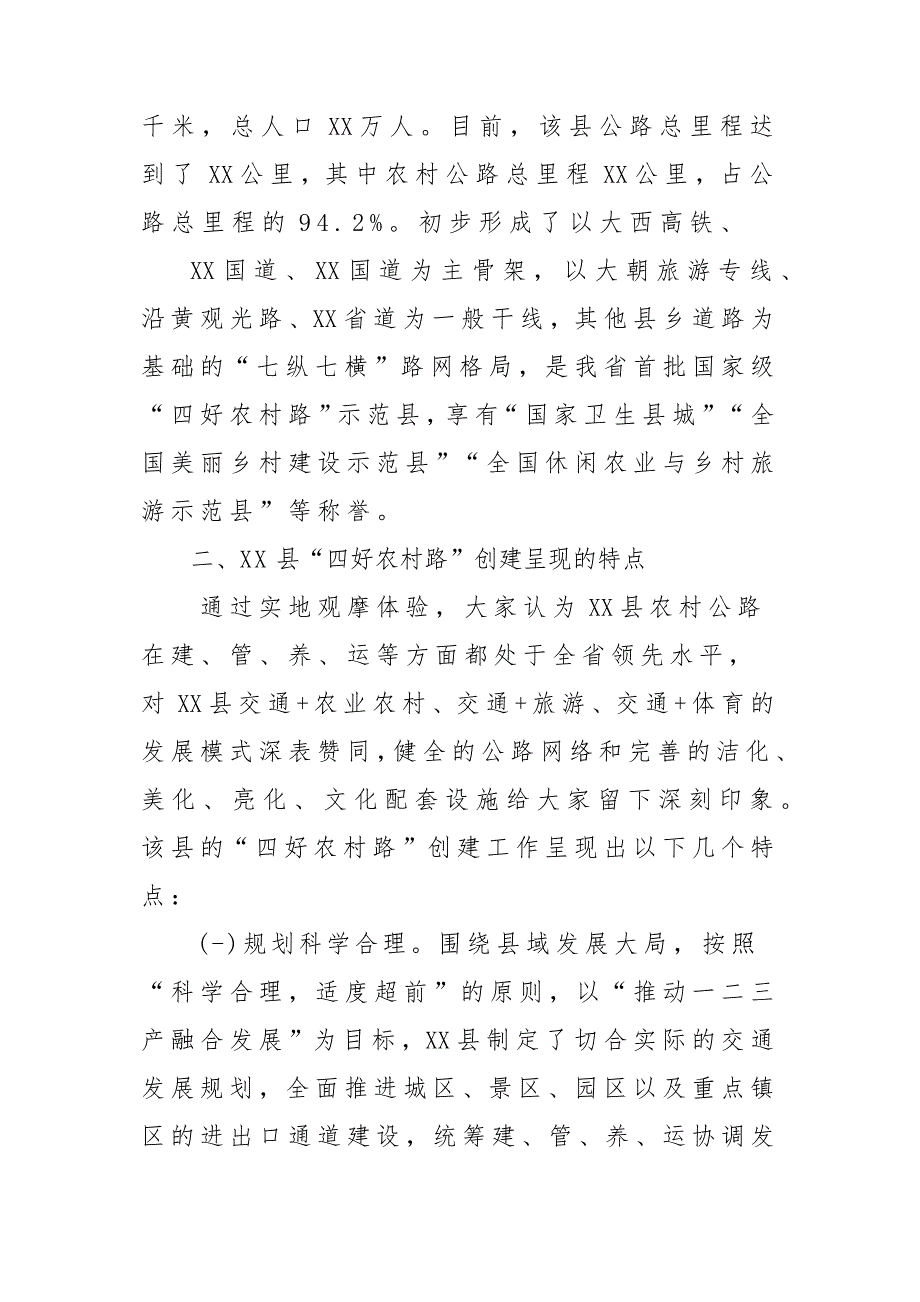 千米，总人口 XX万人。目前，该县公路总里程达
到了 XX公里，其中农村公路总里程 XX公里，占公
路总里程的 94.2%。初步形成了以大西高铁、
XX国道、XX国道为主骨架，以大朝旅游专线、
沿黄观光路、XX省道为一般干线，其他县乡道路为
基础的“七纵七横”路网格局，是我省首批国家级
“四好农村路”示范县，享有“国家卫生县城”“全
国美丽乡村建设示范县”“全国休闲农业与乡村旅
游示范县”等称誉。
二、XX 县“四好农村路”创建呈现的特点
通过实地观摩体验，大家认为 XX县农村公路
在建、管、养、运等方面都处于全省领先水平，
对 XX县交通+农业农村、交通+旅游、交通+体育的
发展模式深表赞同，健全的公路网络和完善的洁化、
美化、亮化、文化配套设施给大家留下深刻印象。
该县的“四好农村路”创建工作呈现出以下几个特
点：
(-)规划科学合理。围绕县域发展大局，按照
“科学合理，适度超前”的原则，以“推动一二三
产融合发展”为目标，XX县制定了切合实际的交通
发展规划，全面推进城区、景区、园区以及重点镇
区的进出口通道建设，统筹建、管、养、运协调发